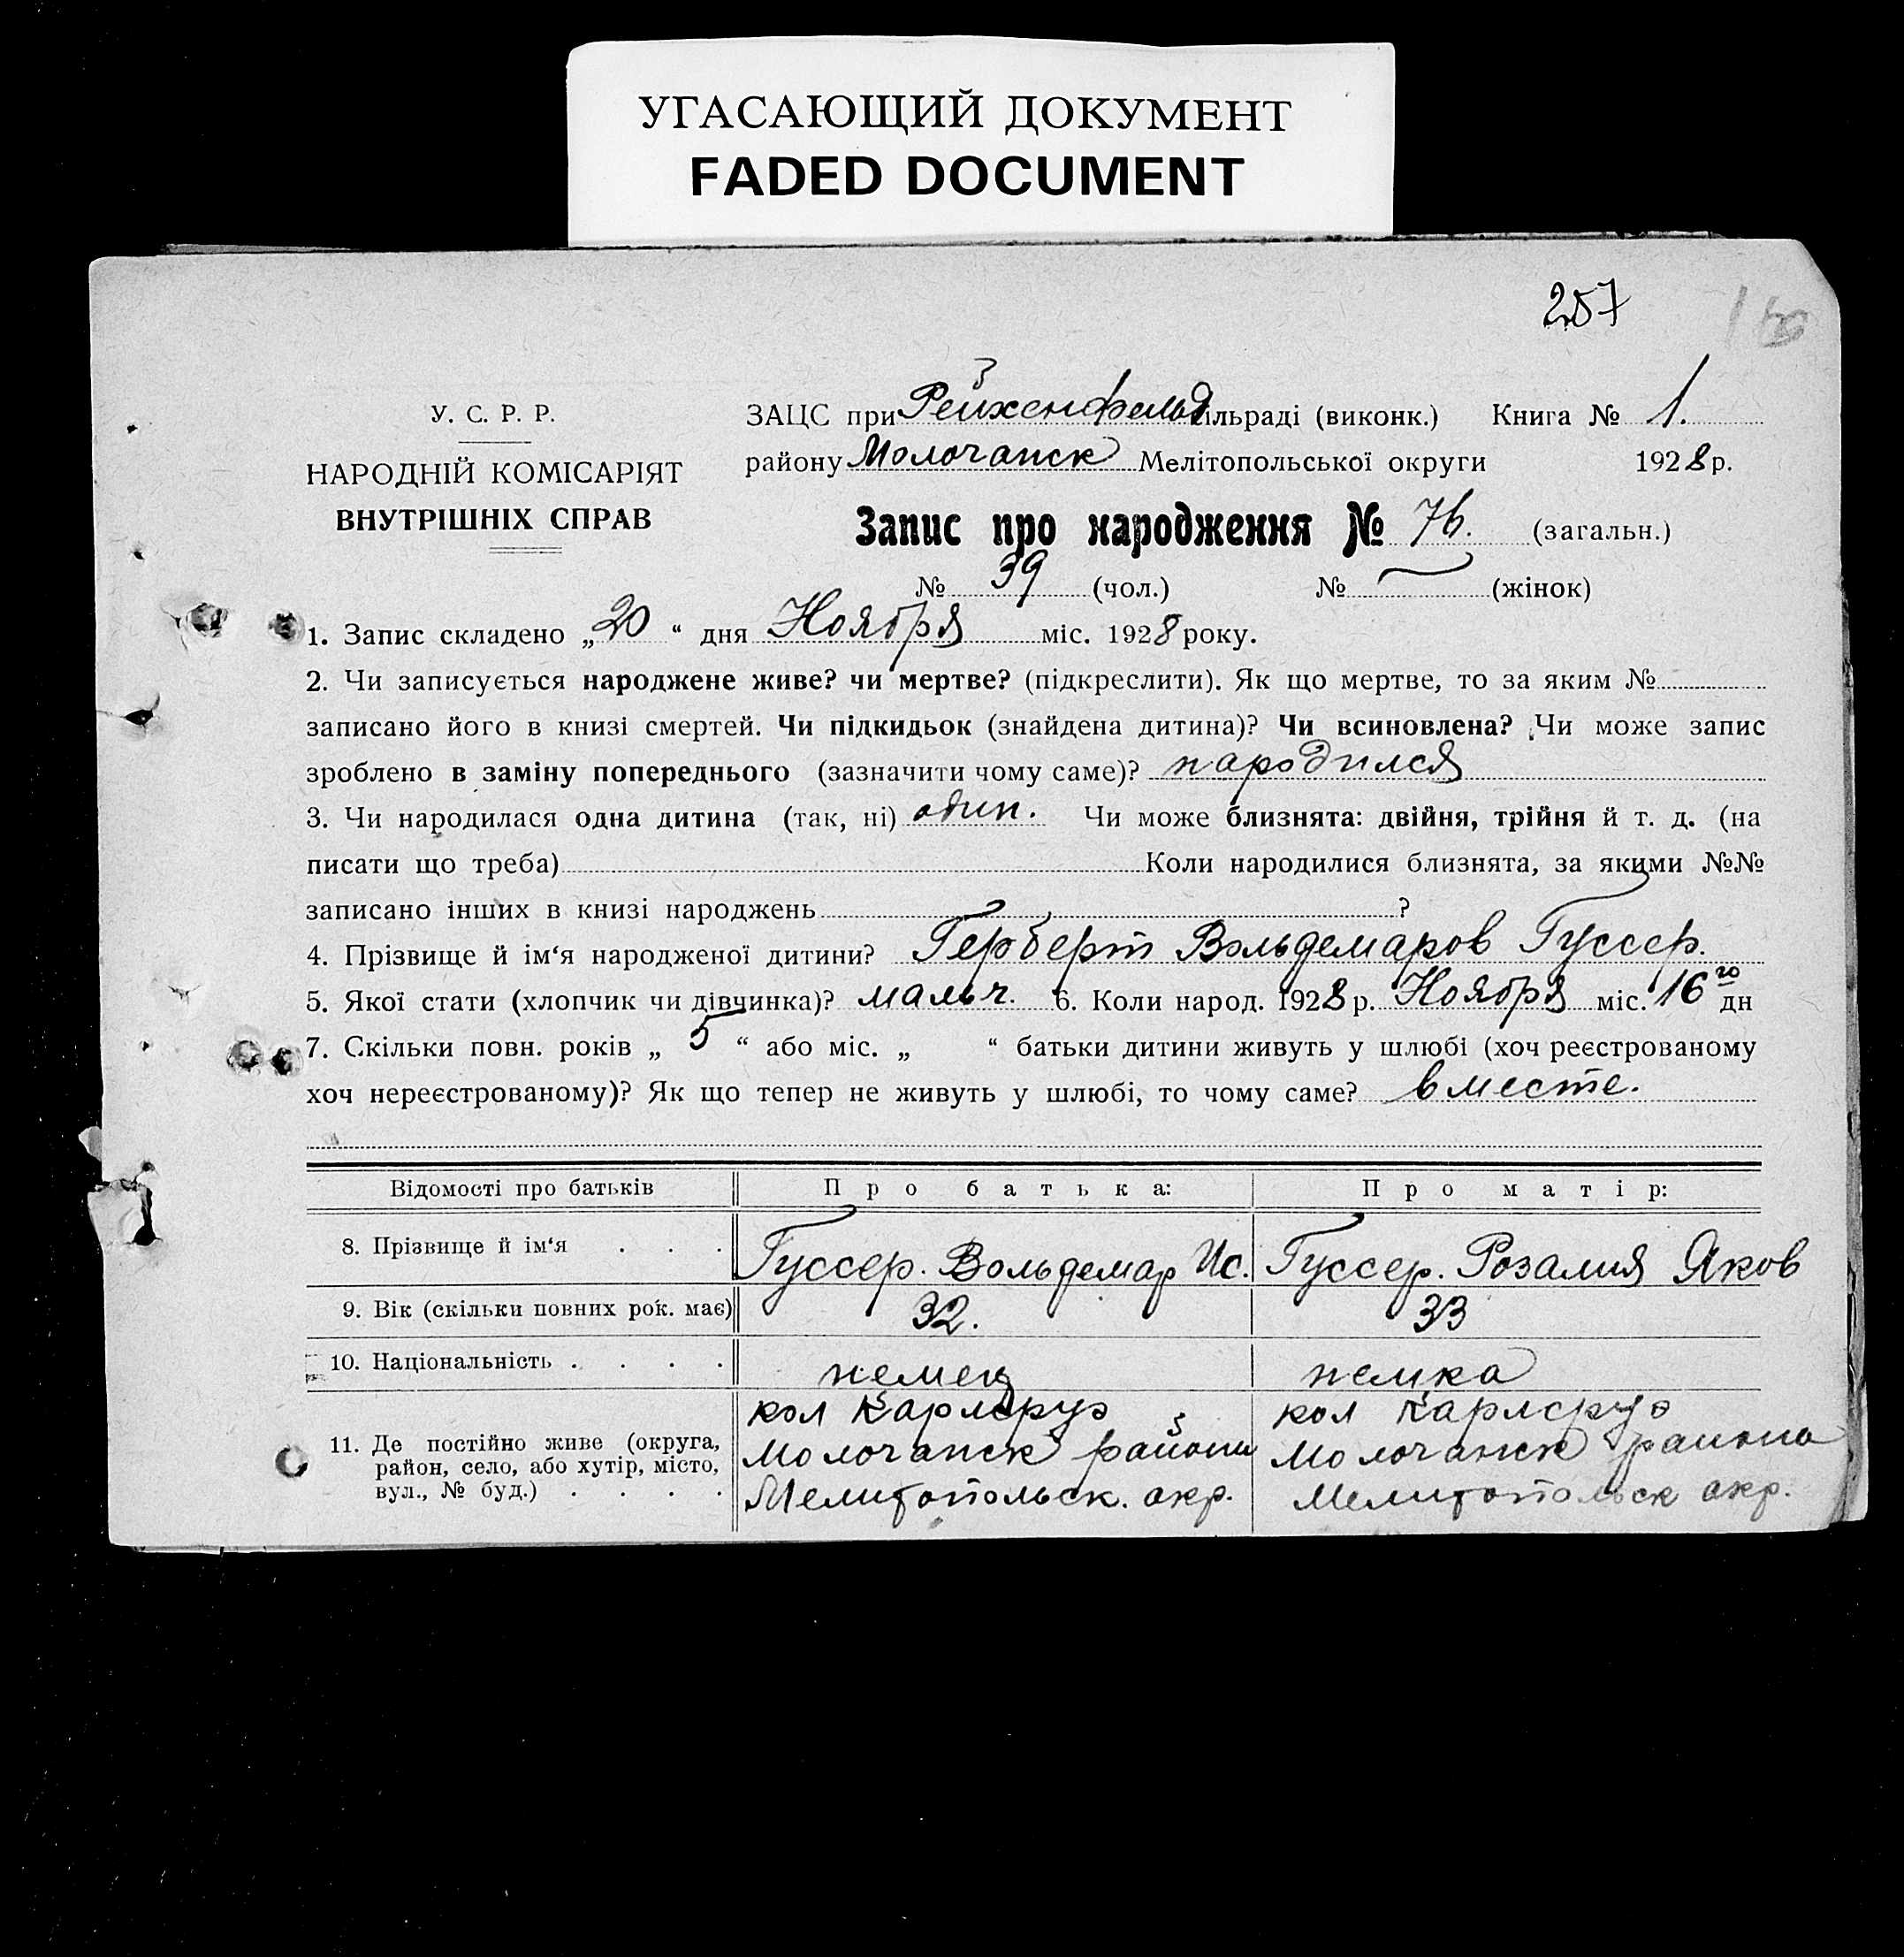 УГАСАЮЩИЙ ДОКУМЕНТ
FADED DOCUMENT
257
У. С. Р. Р.
НАРОДНІЙ КОМІСАРІЯТ
ВНУТРІШНІХ СПРАВ
ЗАЦС при Рейхенфельд сільраді (виконк.) Книга № 1.
району Молочанск Мелітопольської округи 1928 р.
Запис про народження № 76. (загальн.)
№ 39 (чол.) № — (жінок)
1. Запис складено „20“ дня Ноября міс. 1928 року.
2. Чи записується народжене живе? чи мертве? (підкреслити). Як що мертве, то за яким №
записано його в книзі смертей. Чи підкидьок (знайдена дитина)? Чи всиновлена? Чи може запис
зроблено в заміну попереднього (зазначити чому саме)? народился
3. Чи народилася одна дитина (так, ні) один. Чи може близнята: двійня, трійня й т. д. (на
писати що треба) Коли народилися близнята, за якими №№
записано інших в книзі народжень ?
4. Прізвище й ім‘я народженої дитини? Герберт Вольдемаров Гуссер.
5. Якої стати (хлопчик чи дівчинка)? мальч. 6. Коли народ. 1928 р. Ноября міс. 16го дн
7. Скільки повн. років „ 5 “ або міс. „ “ батьки дитини живуть у шлюбі (хоч реєстрованому
хоч нереєстрованому)? Як що тепер не живуть у шлюбі, то чому саме? вместе.
Відомості про батьків Про батька: Про матір:
8. Прізвище й ім‘я . . . Гуссер. Вольдемар Ис. Гуссер. Розалия Яков
9. Вік (скільки повних рок. має) 32. 33
10. Національність . . . . немец немка
кол Карлсруэ кол Карлсруэ
11. Де постійно живе (округа, Молочанск района Молочанск района
район, село, або хутір, місто, Мелитопольск. окр. Мелитопольск окр.
вул., № буд.) . . . .